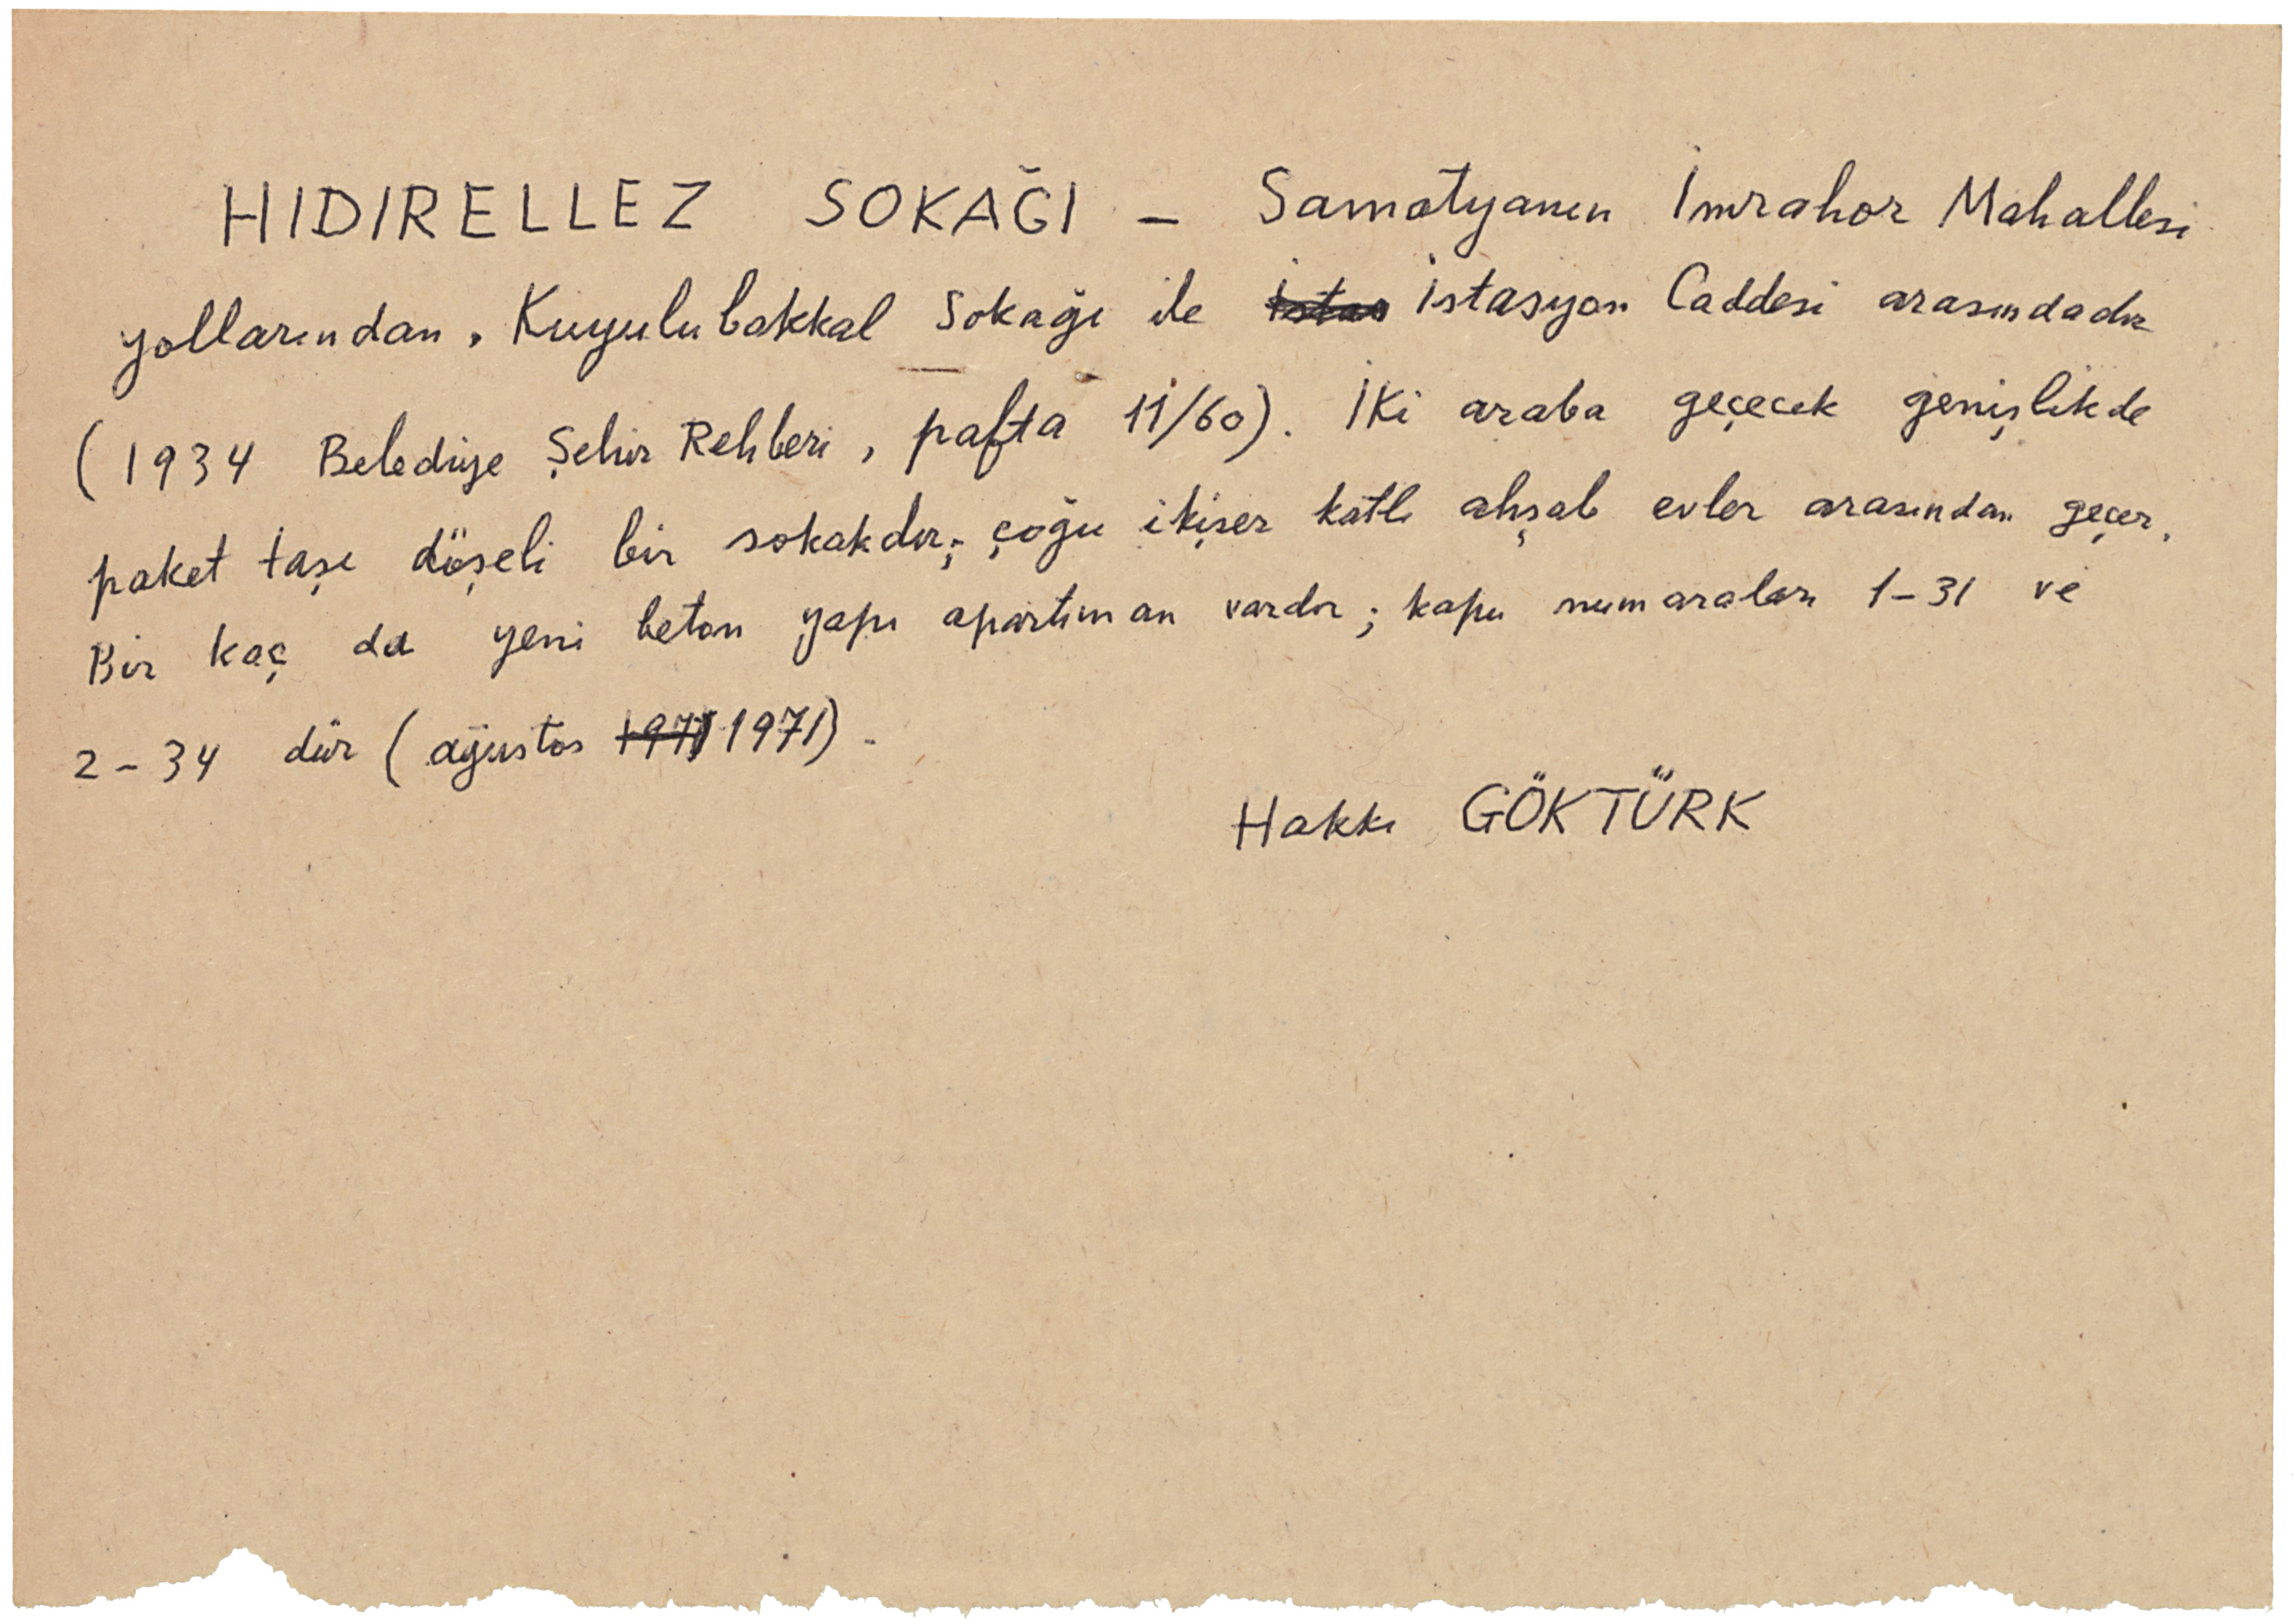 HIDIRELLEZ SOKAĞI – Samatyanın İmrahor Mahallesi
yollarından, Kuyulu bakkal Sokağı ile İstas İstasyon Caddesi arasındadır
(1934 Belediye Şehir Rehberi, pafta 11/60). İki araba geçecek genişlikde
paket taşı döşeli bir sokakdır; çoğu ikişer katlı ahşab evler arasından geçer,
Bir kaç da yeni beton yapı apartıman vardır; kapu numaraları 1-31 ve
2-34 dür (ağustos 1971 1971).
Hakkı GÖKTÜRK